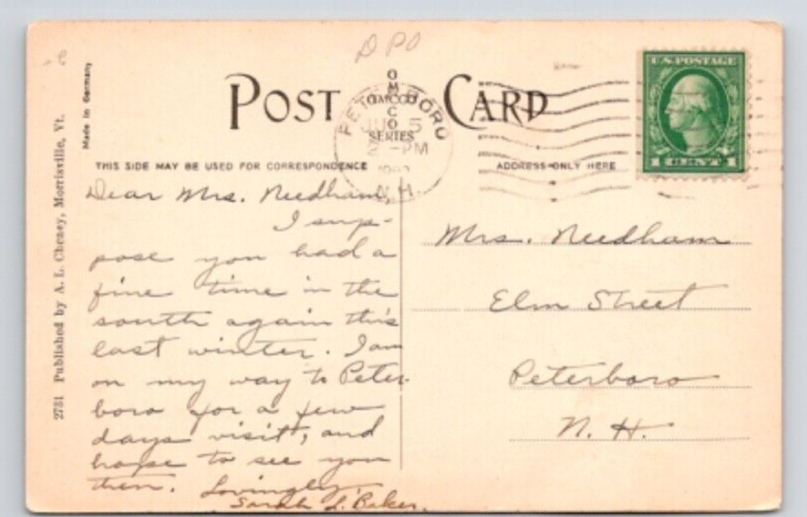 DPO
POST CARD
OMOCO
TOMCCO
SERIES
PETERBORO
5
PM
N.H.
U.S. POSTAGE
1 CENT 1
THIS SIDE MAY BE USED FOR CORRESPONDENCE
ADDRESS ONLY HERE
Made in Germany
2731 Published by A. L. Cheney, Morrisville, Vt.
Dear Mrs. Needham,
I sup-
pose you had a
fine time in the
south again this
last winter. I am
on my way to Peter-
boro for a few
days visit, and
hope to see you
then. Lovingly,
Sarah L. Baker.
Mrs. Needham
Elm Street
Peterboro
N. H.